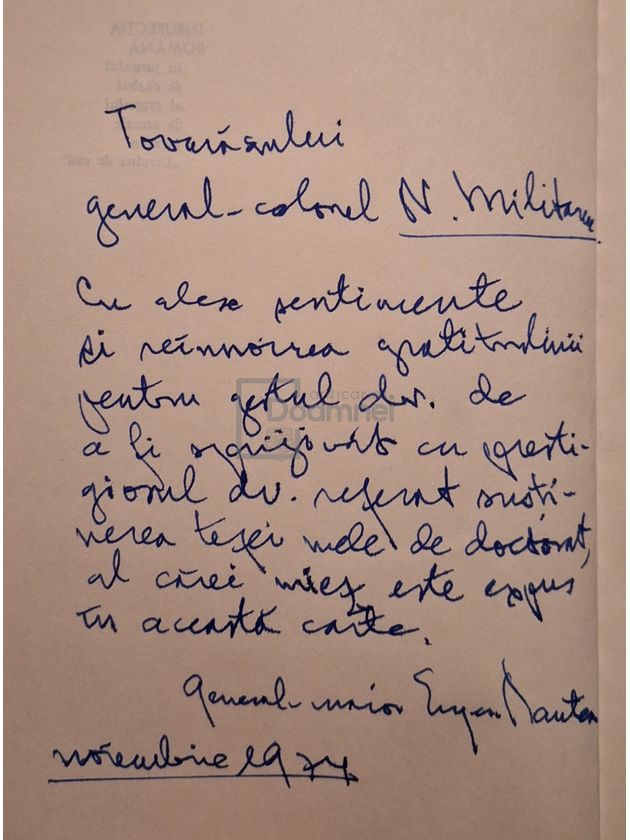 Tovarăsului
general-colonel N. Militaru.
Cu alese sentimente
și reînnoirea gratitudinii
pentru gestul dv. de
a fi sprijinit cu presti-
giosul dv. referat susți-
nerea tezei mele de doctorat,
al cărei miez este expus
în această carte.
General-maior Eugen Bantea
noiembrie 1974
anticariat
Doamnei
INSURECȚIA
ROMÂNĂ
în jurnalul
de război
al grupului
de armate
„Ucraina de sud"